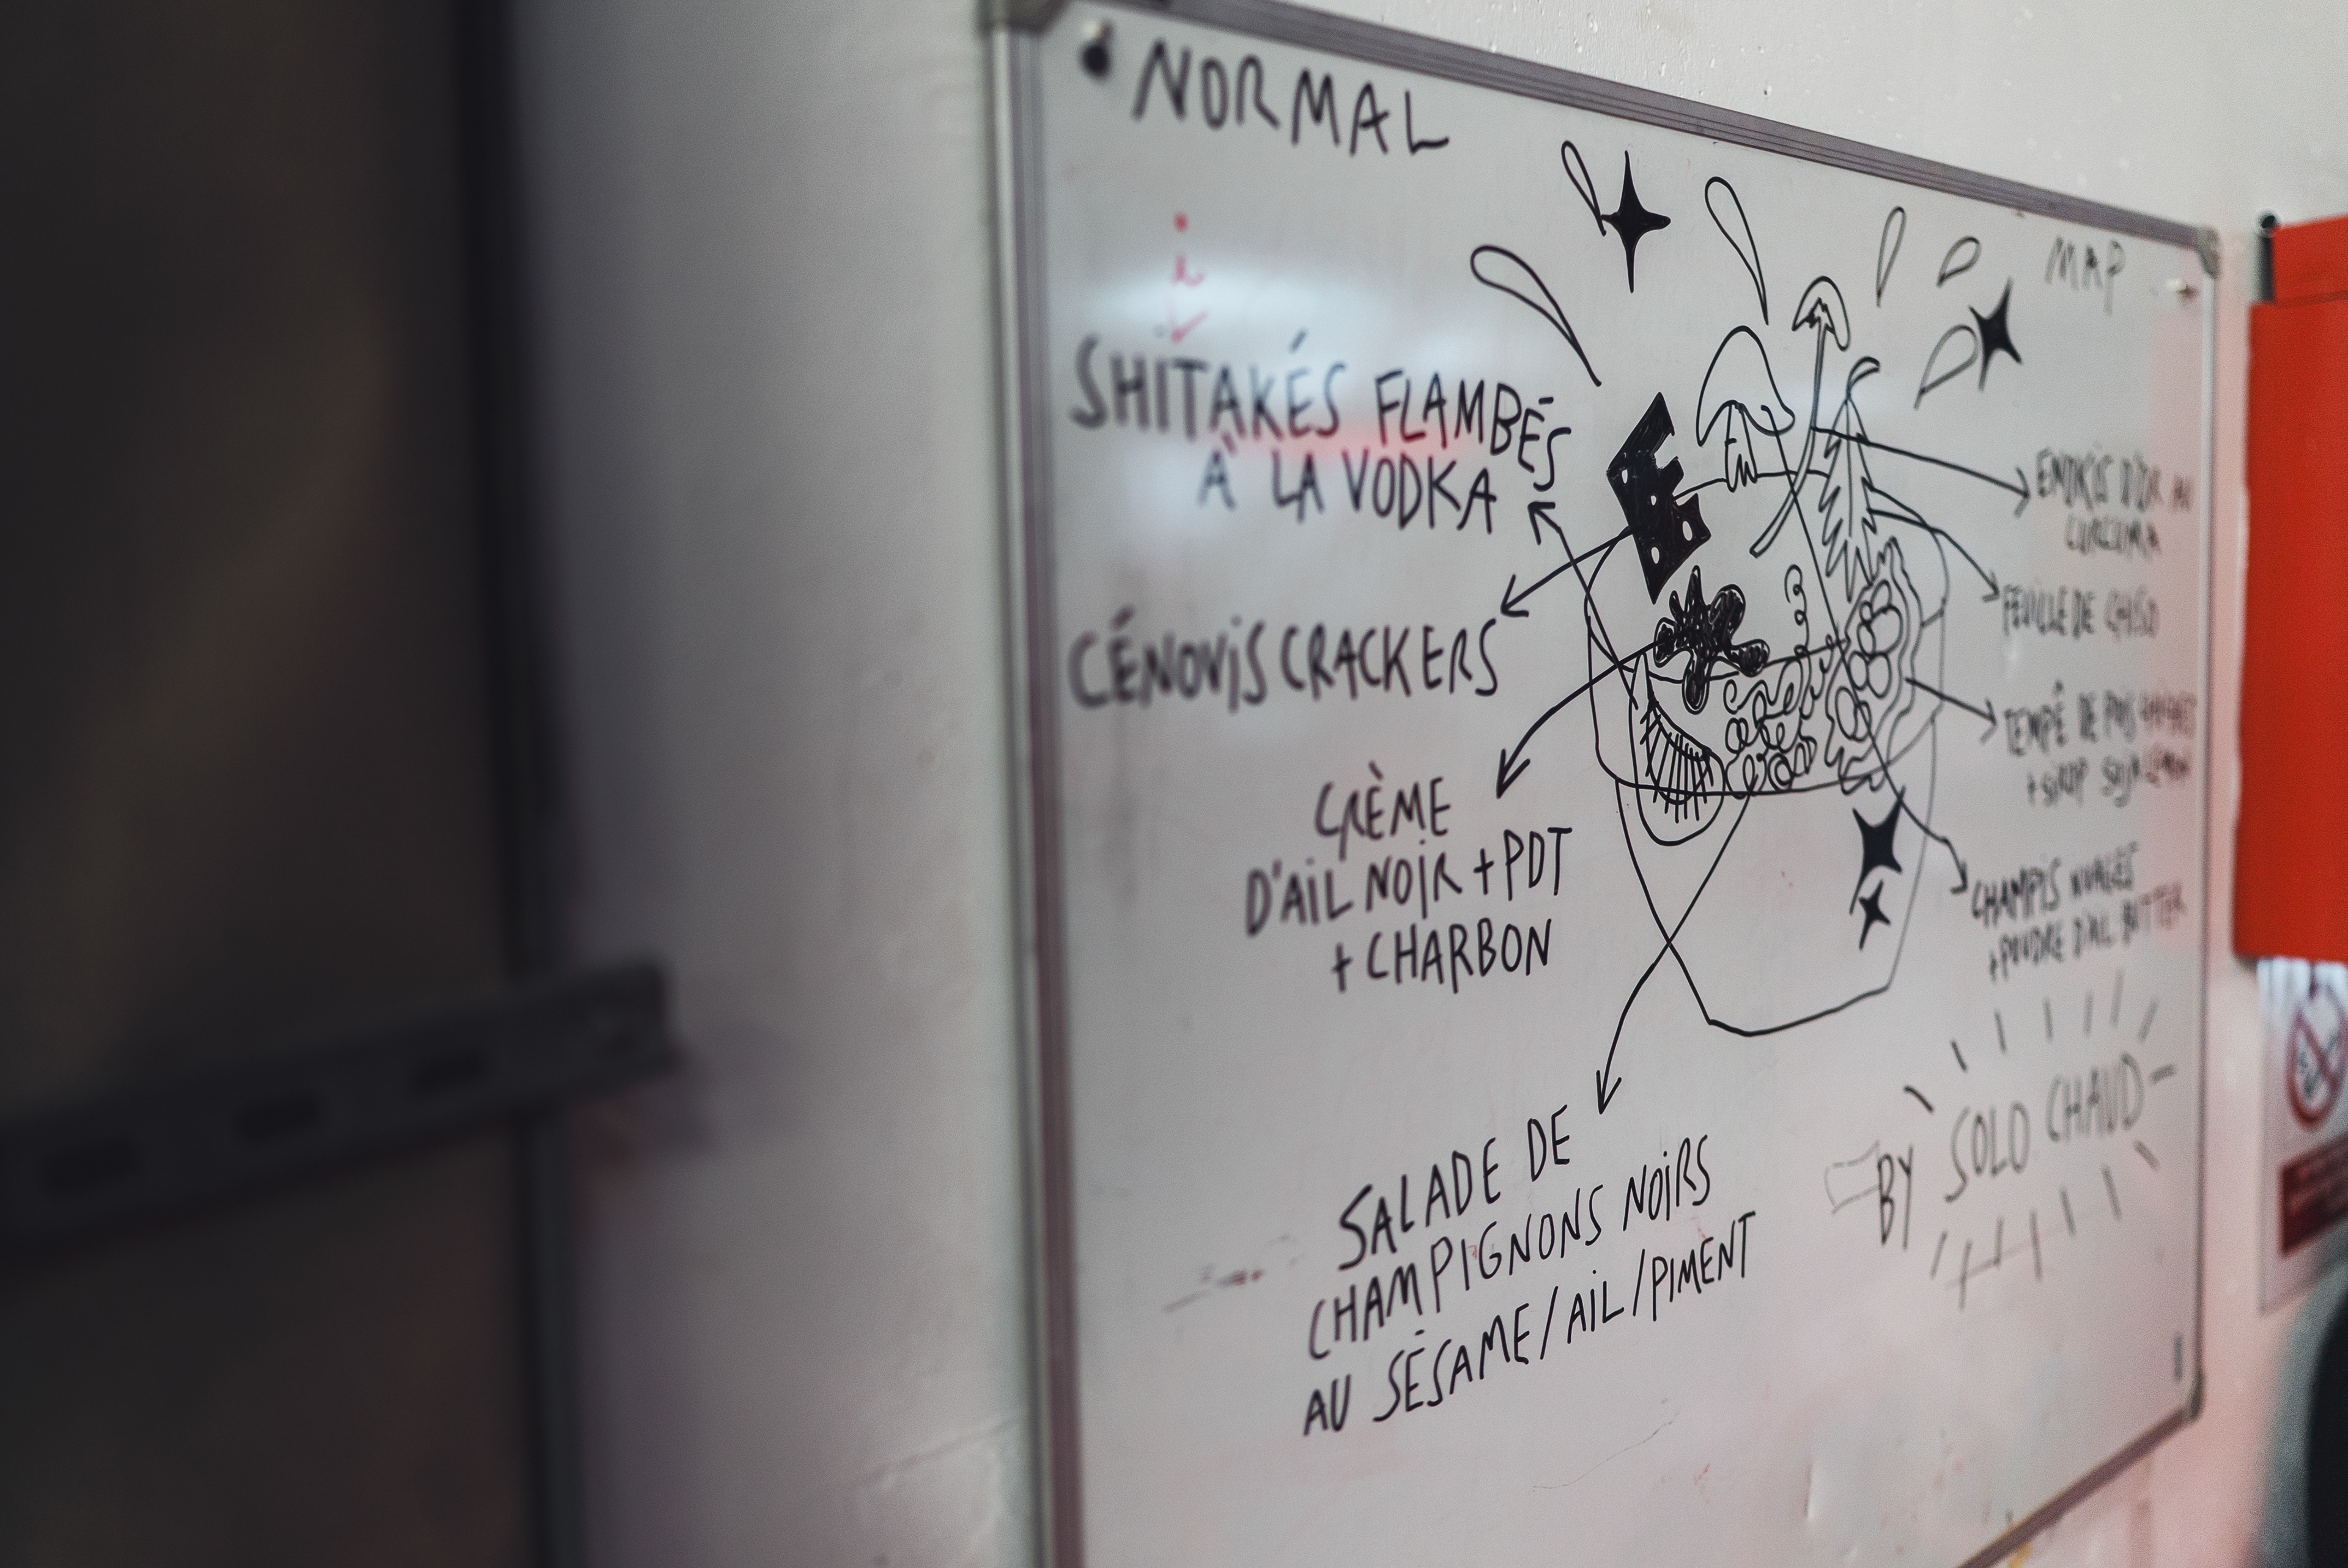 NORMAL
MAP
SHITAKÉS FLAMBÉS
À LA VODKA
CÉNOVIS CRACKERS
CRÈME
D'AIL NOIR + PDT
+ CHARBON
SALADE DE
CHAMPIGNONS NOIRS
AU SÉSAME/AIL/PIMENT
ENOKIS D'OR AU
CURCUMA
FEUILLE DE
TEMPÉ DE POIS
+ SIROP
CHAMPIS
+ POUDRE D'AIL
BY SOLO CHAUD